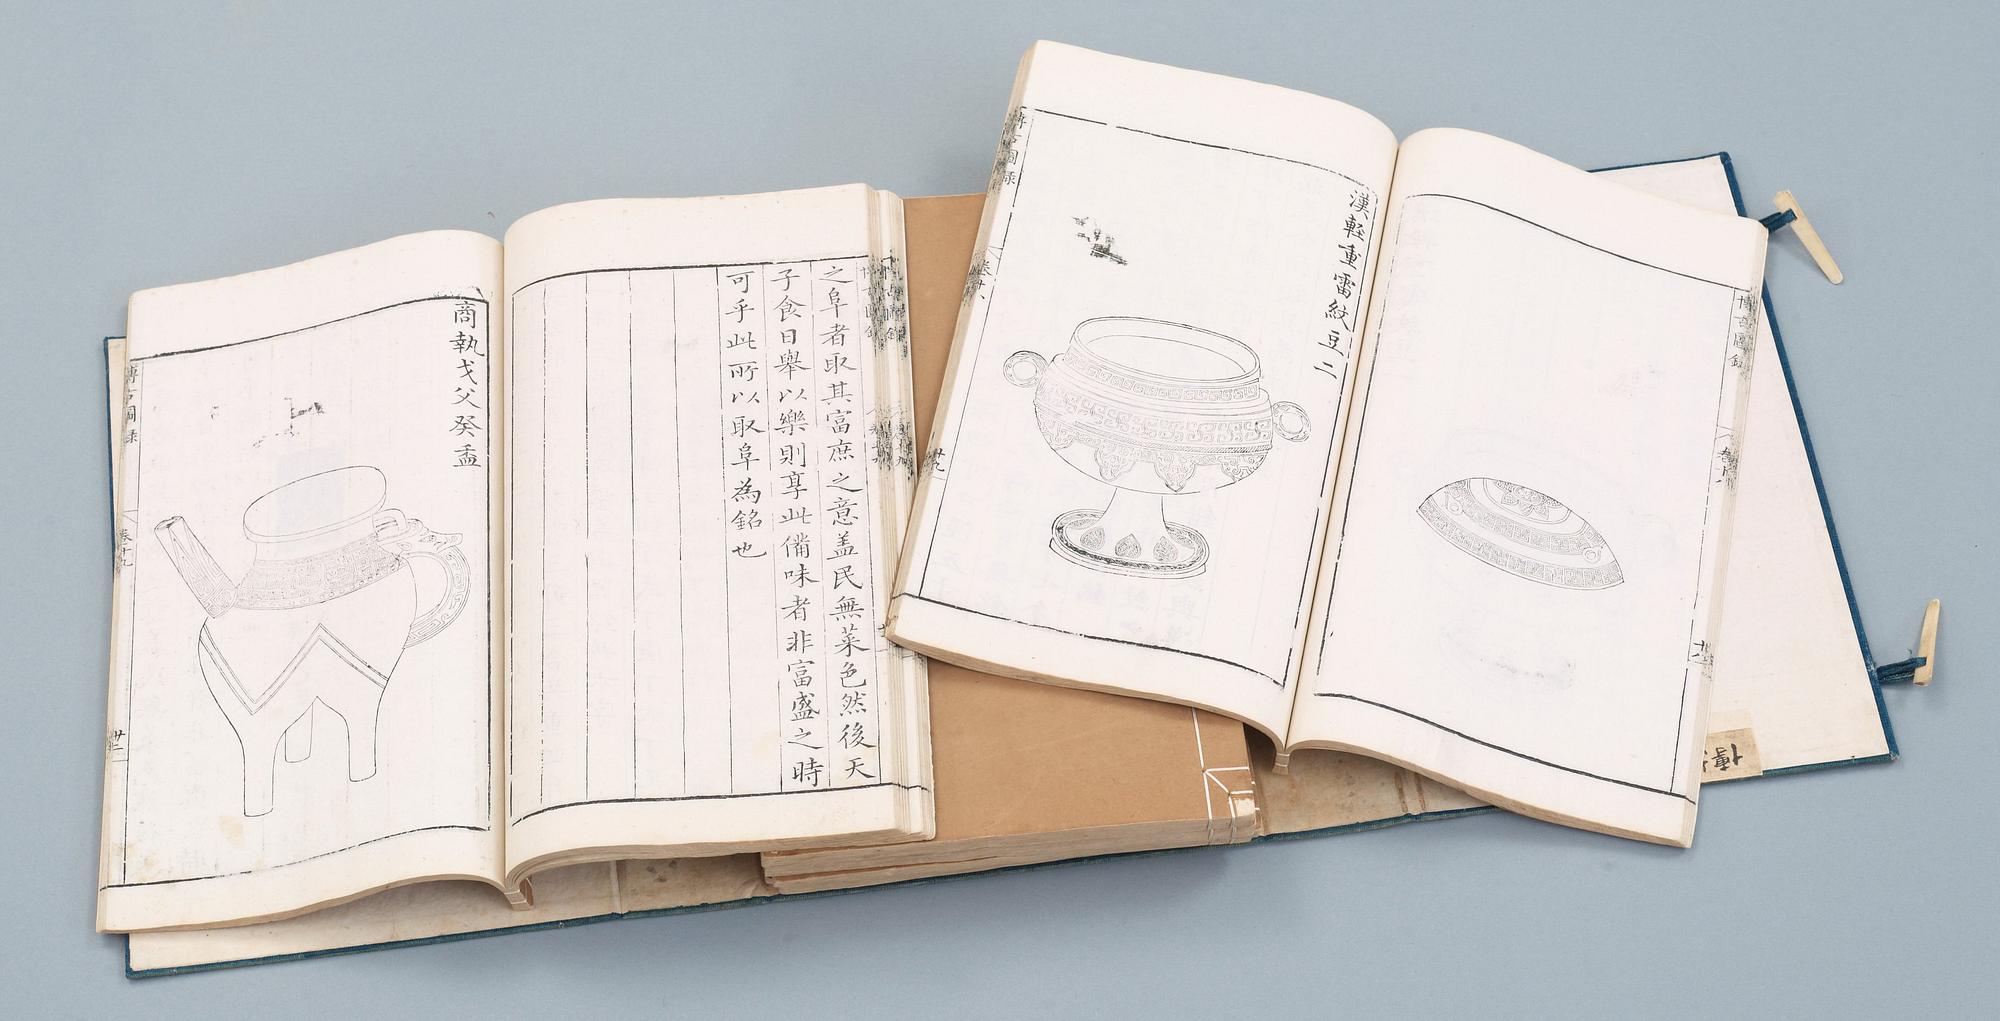 之阜者取其富庶之意盖民無菜色然後天
子食日舉以樂則享此備味者非富盛之時
可乎此所以取阜為銘也
商執戈父癸盉
博古圖錄
卷十九
漢輕重雷紋豆二
博古圖錄
卷十八
廿九
博古圖錄